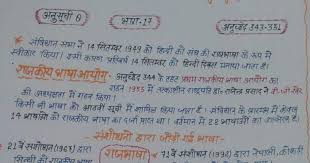 अनुसूची 8 भाग-17 अनुच्छेद 343-351
* संविधान सभा ने 14 सितम्बर 1949 को हिन्दी को संघ की राजभाषा के रूप में
स्वीकार किया। इसी कारण प्रतिवर्ष 14 सितम्बर को हिन्दी दिवस मनाया जाता है।
राजकीय भाषा आयोग- अनुच्छेद 344 के तहत प्रथम राजकीय भाषा आयोग का
गठन 1955 में तत्कालीन राष्ट्रपति डा० राजेन्द्र प्रसाद ने
की अध्यक्षता में गठन किया।
किसी भी भाषा को आठवीं सूची में शामिल किया जाता है। संविधान के प्रारम्भ में केवल
14 भाषाओं को राजकीय भाषा का दर्जा प्राप्त था। वर्तमान में 22 भाषाओं को
- संशोधनों द्वारा जोड़ी गई भाषा -
21 वें संशोधन (1967) द्वारा राजभाषा * 71 वें संशोधन (1992) द्वारा नेपाली, कोंकणी
सिन्धी को राजकीय भाषा